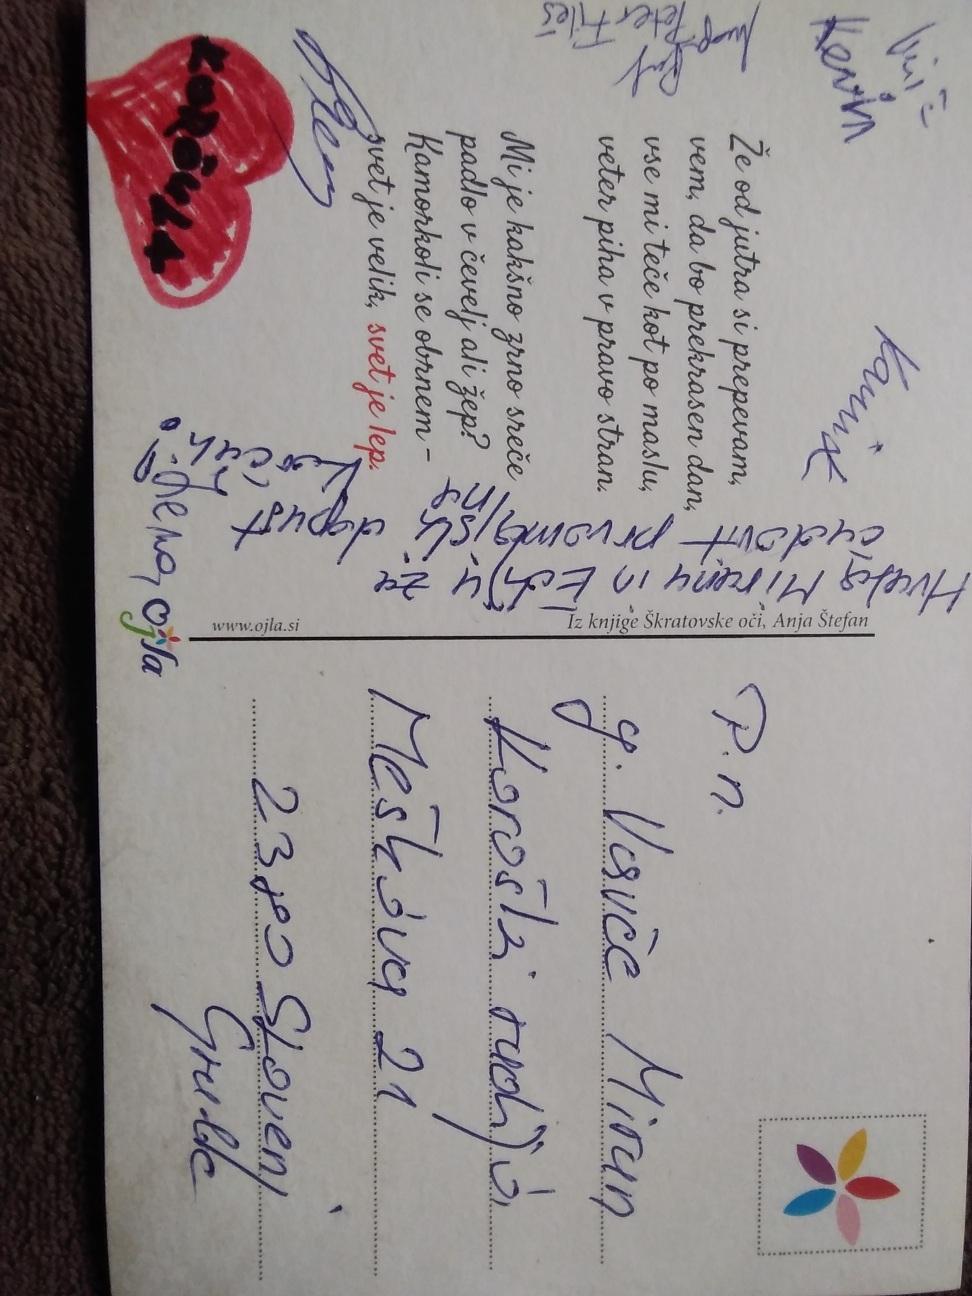 KOROŠKA
Že od jutra si prepevam,
vem, da bo prekrasen dan,
vse mi teče kot po maslu,
veter piha v pravo stran.
Mi je kakšno zrno sreče
padlo v čevelj ali žep?
Kamorkoli se obrnem –
svet je velik, svet je lep.
Hvala Miranu in za
čudovit prvomajski dopust
na
Kervin
www.ojla.si
Iz knjige Škratovske oči, Anja Štefan
ojla
P. n.
g. Vavče Miran
Koroški radio
Meškova 21
2380 Slovenj
Gradec